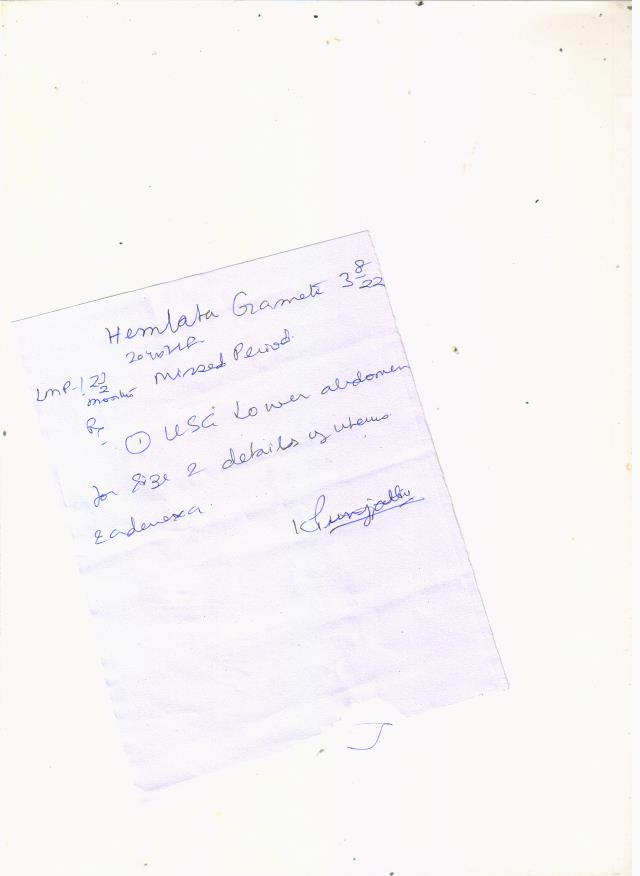 Hemlata Gramete 3 8/22
LMP-1 2½ months Missed Period
Rx
① USG Lower abdomen
for size & details of uterus
& adenexa.